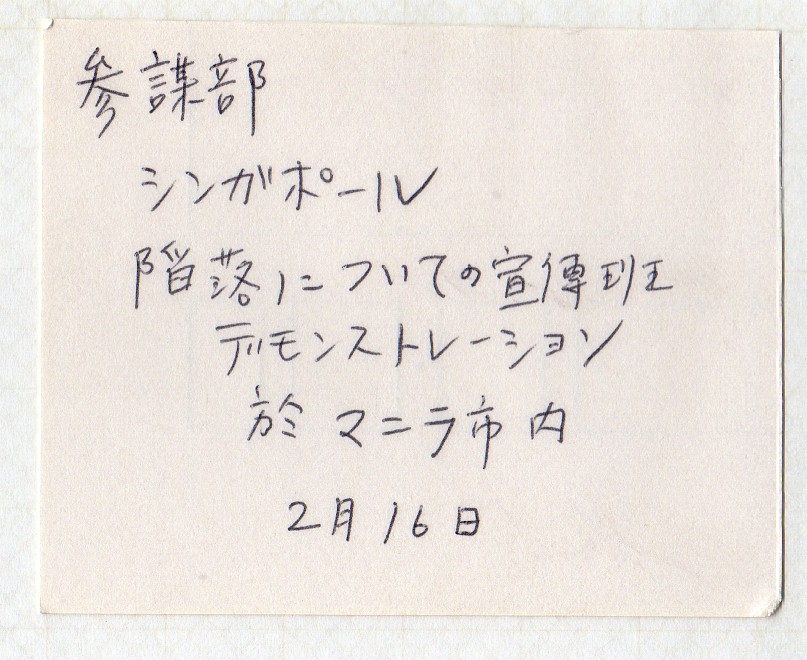 参謀部
シンガポール
陥落についての宣傳班
デモンストレーション
於 マニラ市内
2月16日